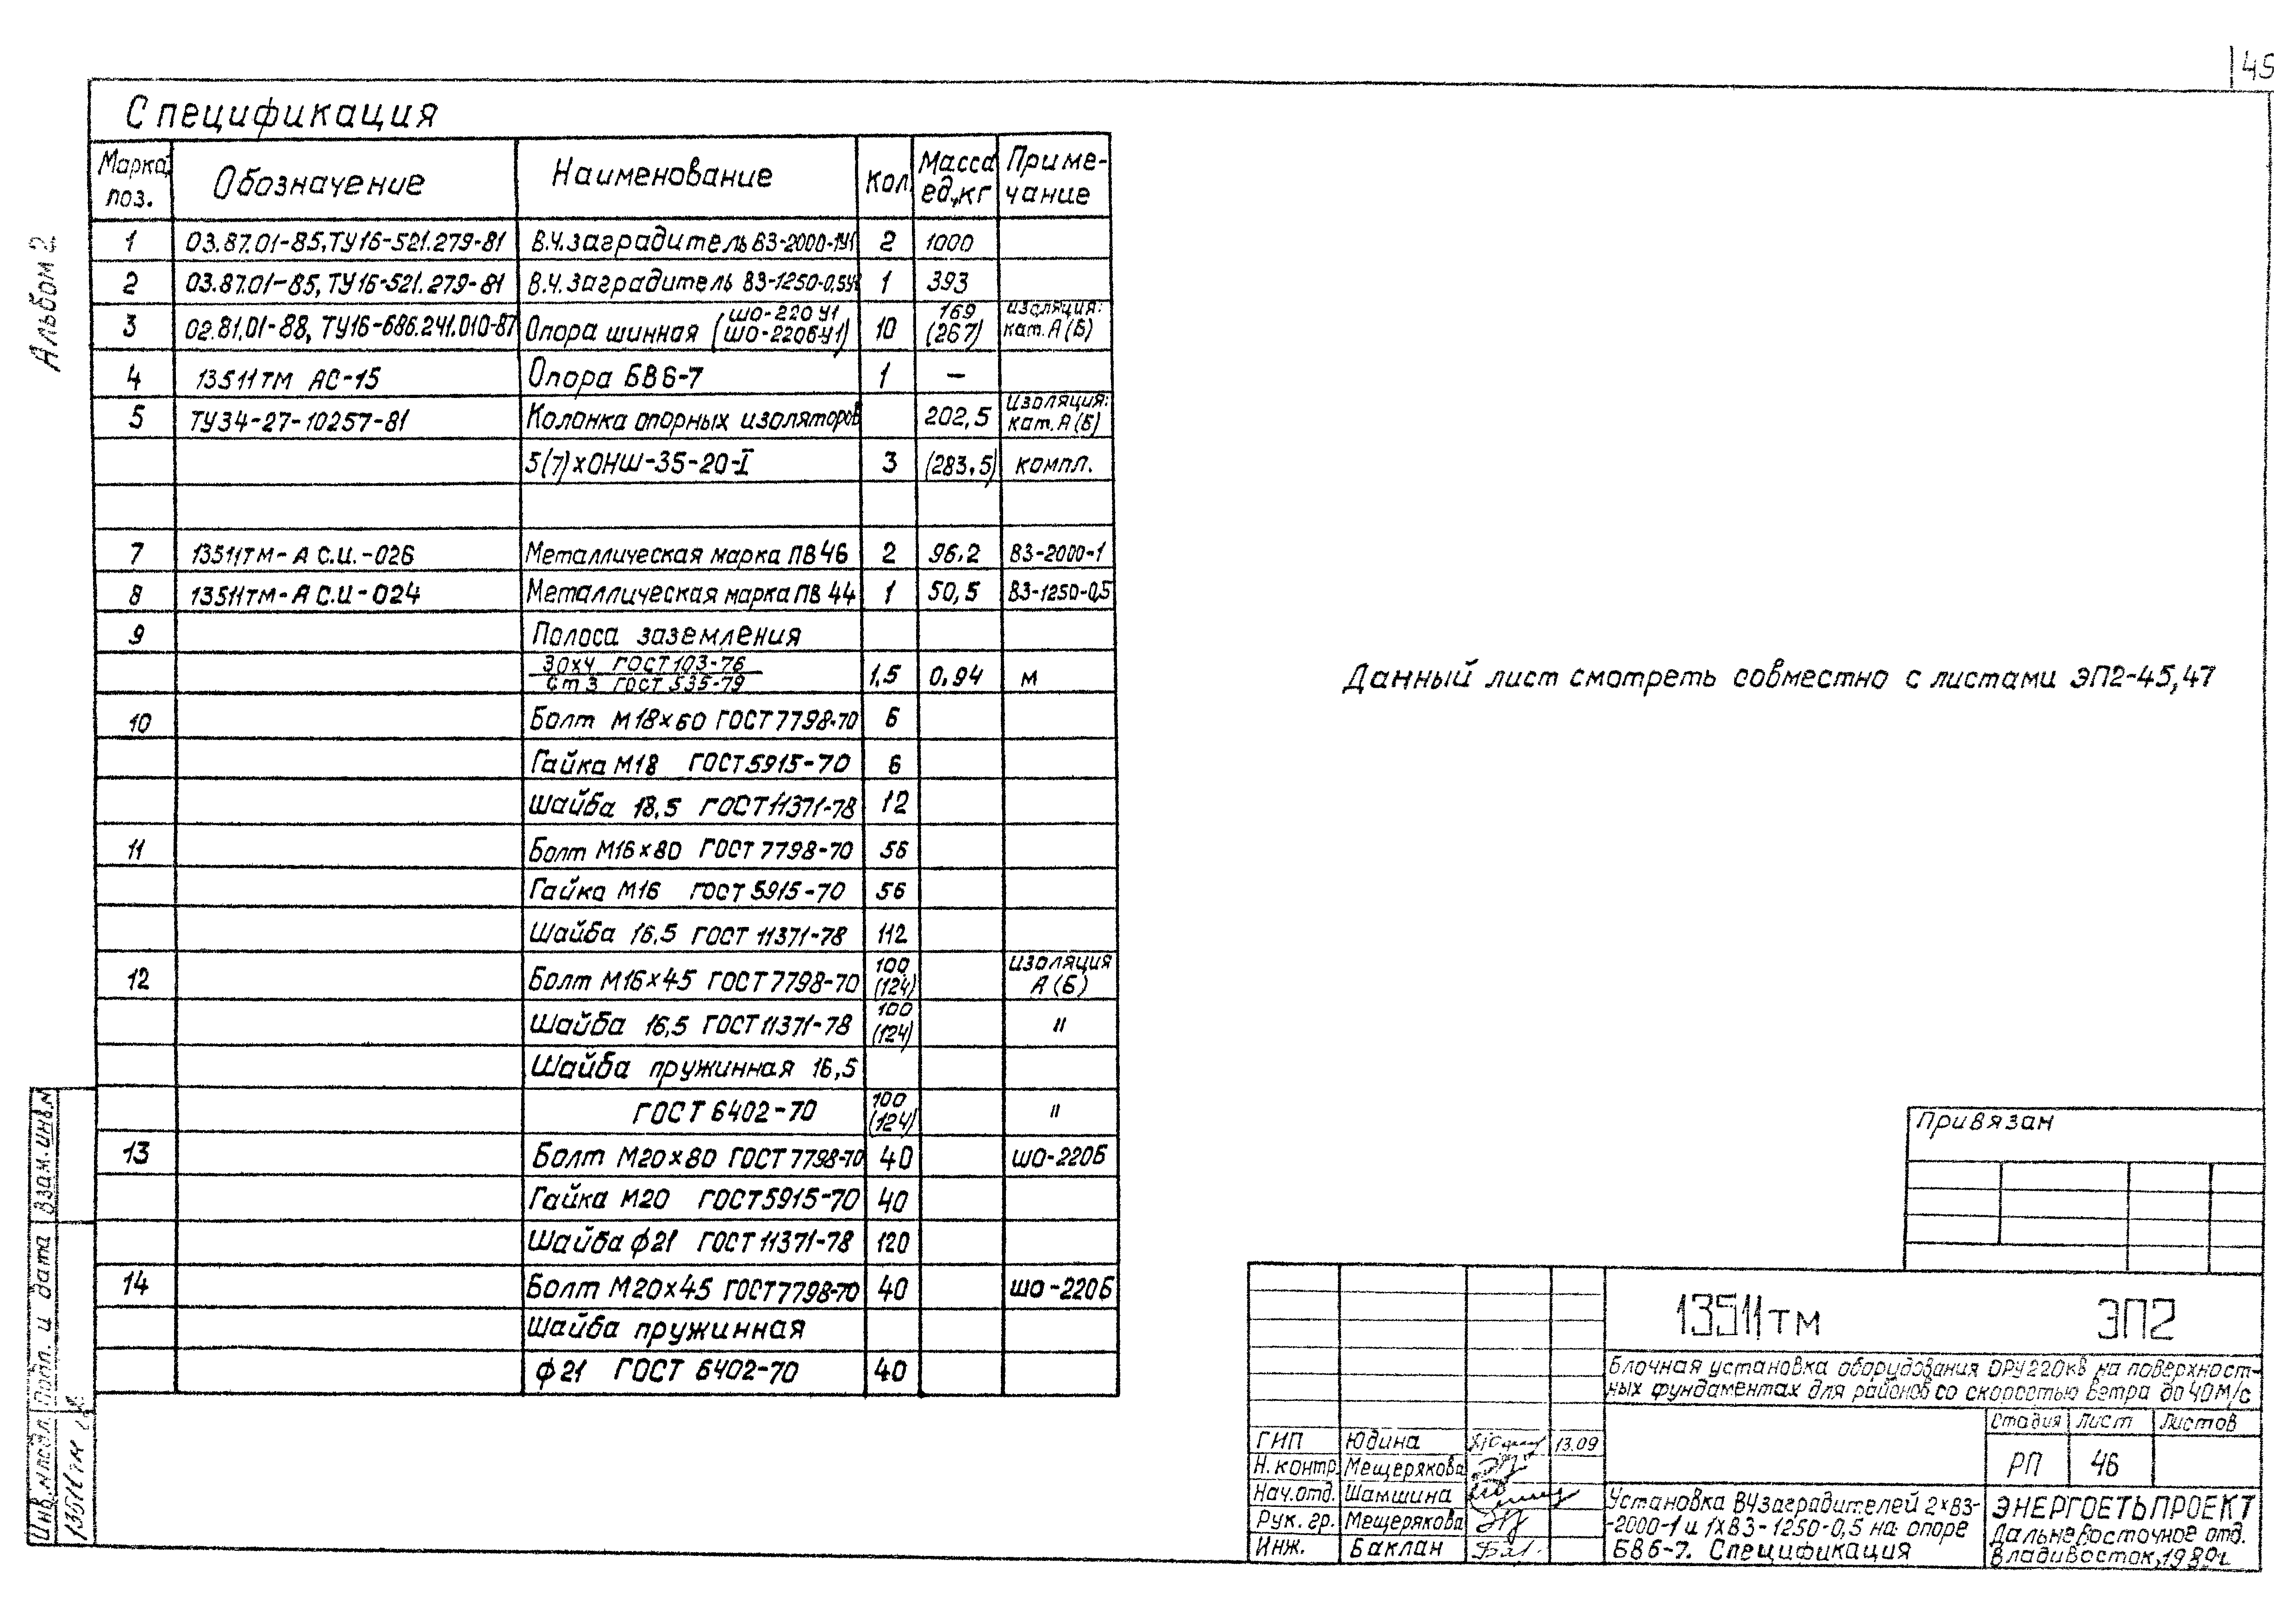 45
Альбом 2
Спецификация
Марка, поз. Обозначение Наименование Кол. Масса ед.,кг Примечание
1 03.87.01-85,ТУ16-521.279-81 В.Ч.заградитель ВЗ-2000-1У1 2 1000
2 03.87.01-85,ТУ16-521.279-81 В.Ч.заградитель ВЗ-1250-0,5У1 1 393
3 02.81.01-88, ТУ16-686.241.010-87 Опора шинная (ШО-220У1 (ШО-220Б-У1) 10 169 (267) изоляция: кат. А(Б)
4 13511тм АС-15 Опора БВ6-7 1 —
5 ТУ34-27-10257-81 Колонка опорных изоляторов 202,5 изоляция: кат. А(Б)
5(7)хОНШ-35-20-I 3 (283,5) компл.
7 13511тм-А С.И.-026 Металлическая марка ПВ46 2 96.2 ВЗ-2000-1
8 13511тм-А С.И-024 Металлическая марка ПВ 44 1 50,5 ВЗ-1250-0,5
9 Полоса заземления
30х4 ГОСТ 103-76
Ст3 ГОСТ 535-79 1,5 0.94 м
10 Болт М18х60 ГОСТ7798-70 6
Гайка М18 ГОСТ5915-70 6
Шайба 18,5 ГОСТ11371-78 12
11 Болт М16х80 ГОСТ 7798-70 56
Гайка М16 ГОСТ 5915-70 56
Шайба 16,5 ГОСТ 11371-78 112
12 Болт М16х45 ГОСТ7798-70 100 (124) изоляция А(Б)
Шайба 16,5 ГОСТ11371-78 100 (124) "
Шайба пружинная 16,5
ГОСТ 6402-70 100 (124) "
13 Болт М20х80 ГОСТ7798-70 40 ШО-220Б
Гайка М20 ГОСТ5915-70 40
Шайба ф21 ГОСТ11371-78 120
14 Болт М20х45 ГОСТ7798-70 40 ШО-220Б
Шайба пружинная
ф21 ГОСТ 6402-70 40
Данный лист смотреть совместно с листами ЭП2-45,47
Привязан
13511тм ЭП2
Блочная установка оборудования ОРУ220кВ на поверхност-
ных фундаментах для районов со скоростью ветра до 40м/с
Стадия Лист Листов
РП 46
ГИП Юдина 13.09
Н.контр. Мещерякова
Нач.отд. Шамшина
Рук. гр. Мещерякова
Инж. Баклан
Установка ВЧзаградителей 2хВЗ-
-2000-1 и 1хВЗ-1250-0,5 на опоре
БВ6-7. Спецификация
ЭНЕРГОСЕТЬПРОЕКТ
Дальневосточное отд.
Владивосток,1989г.
Инв.№подл. Подп. и дата Взам.инв.№
13511тм